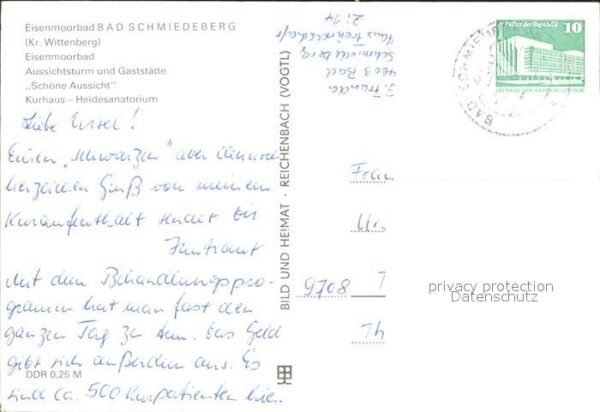 Eisenmoorbad BAD SCHMIEDEBERG
(Kr. Wittenberg)
Eisenmoorbad
Aussichtsturm und Gaststätte
„Schöne Aussicht"
Kurhaus – Heidesanatorium
Liebe Ursel!
Einen „schwarzen" aber dennoch
herzlichen Gruß von meinem
Kuraufenthalt sendet dir
Mit dem Behandlungspro-
gramm hat man fast den
ganzen Tag zu tun. Das Geld
gibt sich außerdem aus. Es
sind ca. 500 Kurpatienten hier.
DDR 0,25 M
BILD UND HEIMAT · REICHENBACH (VOGTL)
4603 Bad
Schmiedeberg
Z. 14
10
Palast der Republik
DEUTSCHE DEMOKRATISCHE REPUBLIK
BAD SCHMIEDEBERG
Frau
9708
privacy protection
Datenschutz